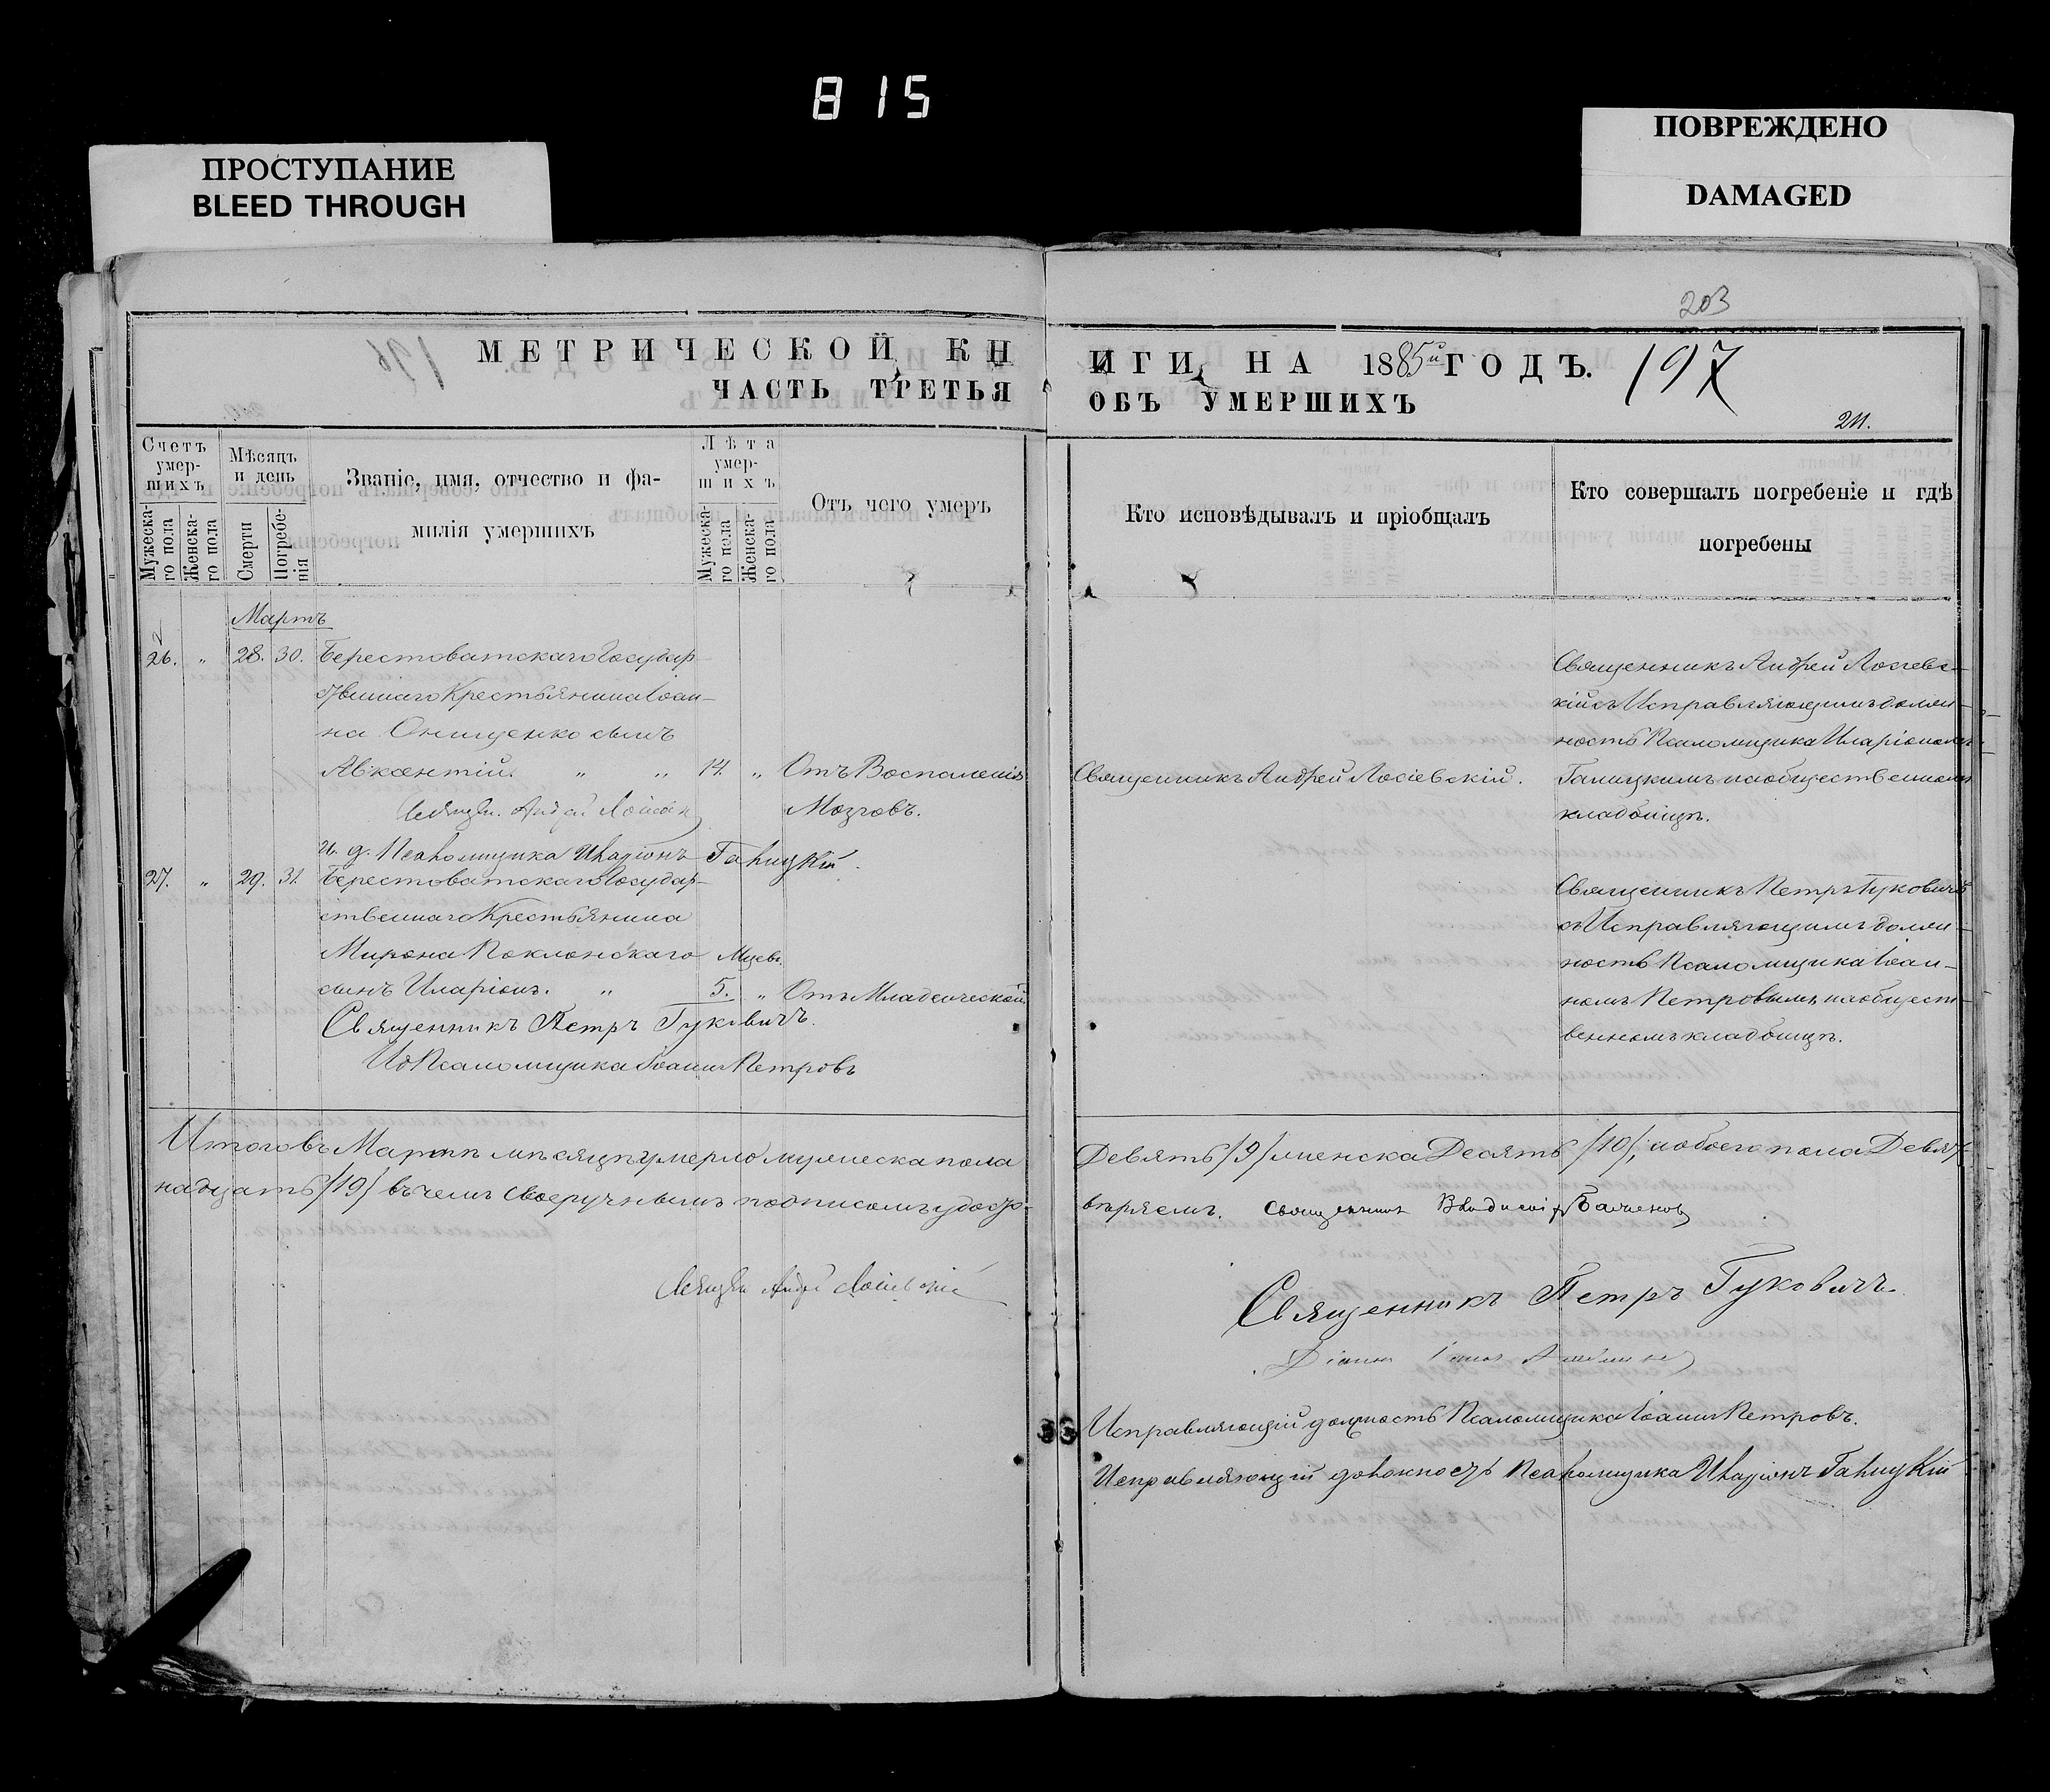 815
ПРОСТУПАНИЕ
BLEED THROUGH
ПОВРЕЖДЕНО
DAMAGED
203
МЕТРИЧЕСКОЙ КН
ЧАСТЬ ТРЕТЬЯ
ИГИ НА 1885й ГОДЪ.
197
ОБЪ УМЕРШИХЪ
Счетъ умерших̀ъ
Мужеска-го пола
Женска-го пола
Мѣсяцъ и день
Смерти
Погребе-нія
Званіе, имя, отчество и фа-
милія умершихъ
Лѣта умер-шихъ
Мужеска-го пола
Женска-го пола
Отъ чего умеръ
Кто исповѣдывалъ и пріобщалъ
Кто совершалъ погребеніе и гдѣ
погребены
Мартъ
26. " 28. 30. Берестоватскаго Государ-
ственнаго Крестьянина Іоан-
на Онищенко сынъ
Авксентій. " " 14. " Отъ Воспаленія
Мозговъ.
Священникъ Андрей Лосіевскій.
Священникъ Андрей Лосіевс-
кій съ Исправляющимъ долж-
ность Псаломщика Иларіономъ
Галицкимъ на общественномъ
кладбищѣ.
Священ. Андрей
и. д. Псаломщика Иларіонъ Галицкій.
27. " 29. 31. Берестоватскаго Государ-
ственнаго Крестьянина
Мирона Поклонскаго
сынъ Иларіонъ. " 5. " Отъ Младенческой
Священникъ Петръ Гуковичъ
съ Исправляющимъ долж-
ность Псаломщика Іоан-
номъ Петровымъ на общест-
венномъ кладбищѣ.
Священникъ Петръ Гуковичъ.
ИД Псаломщика Іоаннъ Петровъ
Итого въ Мартѣ мѣсяцѣ умерло мужеска пола
Девять /9/ женска Десять /10/, а обоего пола Девят-
надцать /19/ въ чемъ своеручнымъ подписомъ удосто-
вѣряемъ. Священникъ
Священ Андрей Лосіевскій
Священникъ Петръ Гуковичъ.
Исправляющій должность Псаломщика Іоаннъ Петровъ.
Исправляющій должность Псаломщика Иларіонъ Галицкій